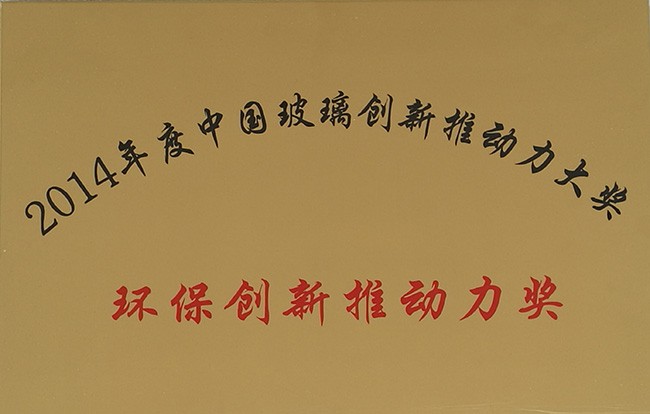 2014年度中国玻璃创新推动力大奖
环保创新推动力奖